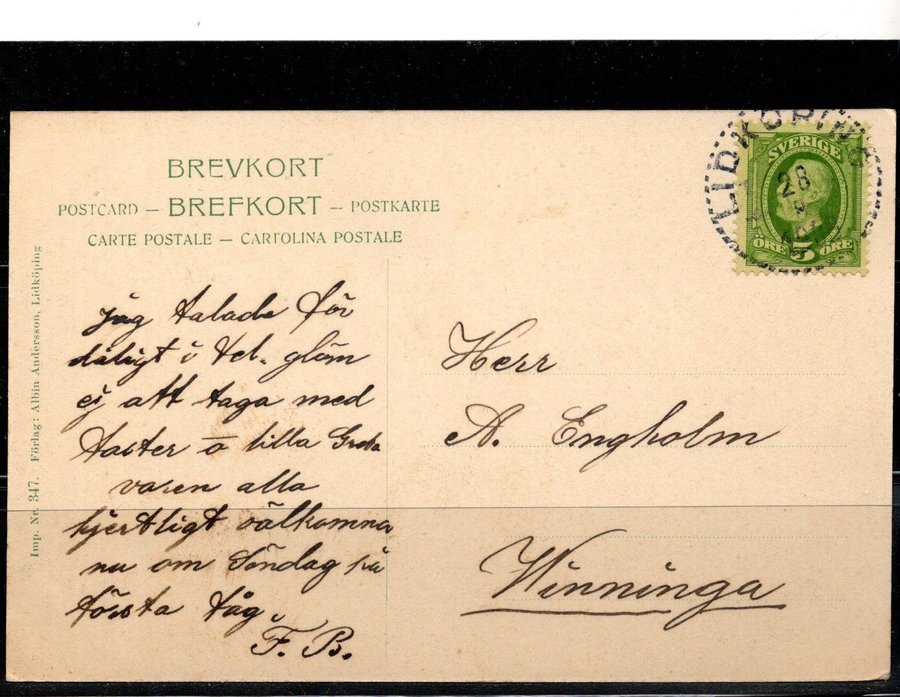 BREVKORT
POSTCARD — BREFKORT — POSTKARTE
CARTE POSTALE — CARTOLINA POSTALE
LIDKÖPING
28
SVERIGE
ÖRE 5 ÖRE
Imp. Nr. 347. Förlag: Albin Andersson, Lidköping
jag talade för
dåligt i tel. glöm
ej att taga med
Faster o lilla Greta
varen alla
hjertligt välkomna
nu om Söndag på
första tåg.
F. B.
Herr
A. Engholm
Winninga